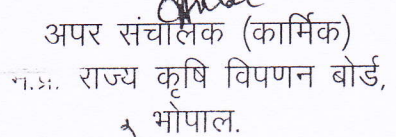 अपर संचालक (कार्मिक)
म.प्र. राज्य कृषि विपणन बोर्ड,
भोपाल.